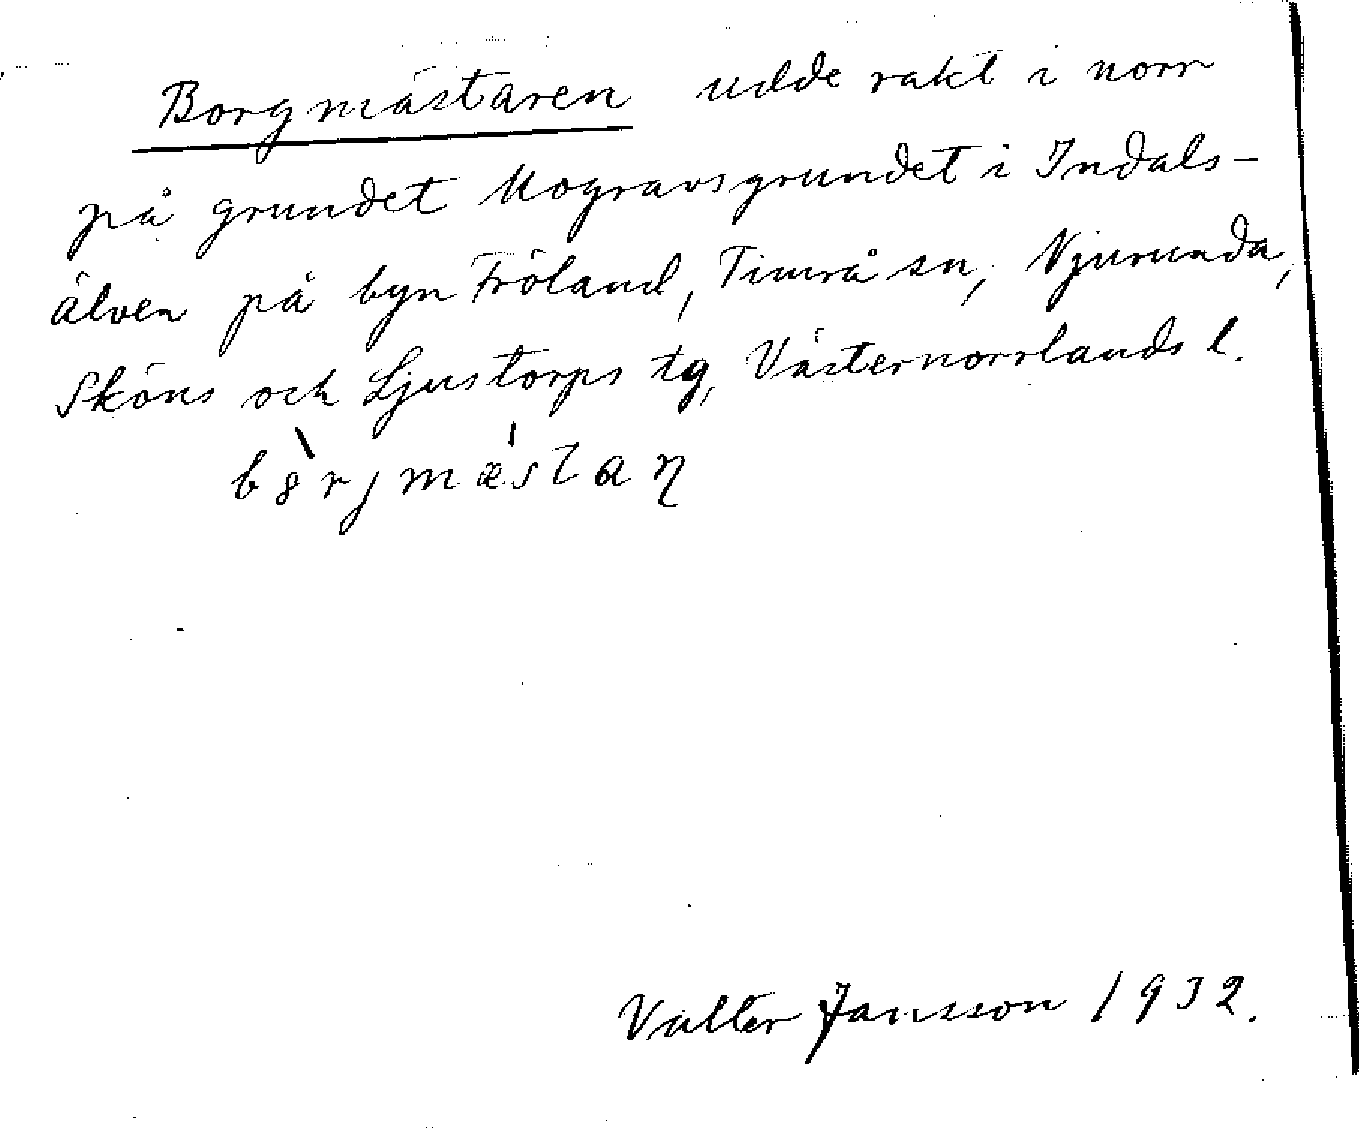 Borgmästaren udde rakt i norr
på grundet Mogravsgrundet i Indals-
älven på byn Fröland, Timrå sn, Njurunda,
Sköns och Ljustorps tg, Västernorrlands l.
Valter Jansson 1932.